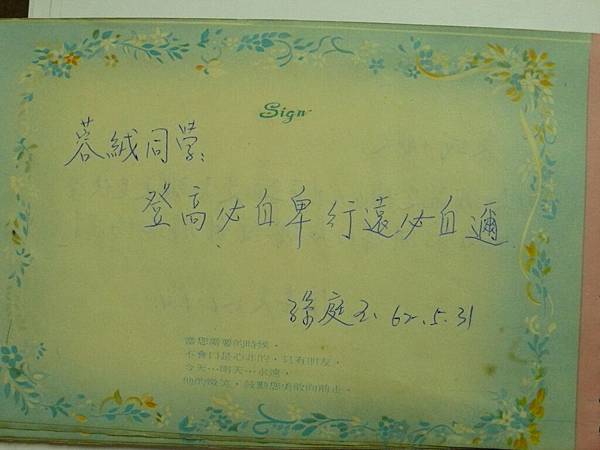 Sign
蓉絨同學：
登高必自卑行遠必自邇
孫庭玉 62.5.31
當您需要的時候，
不會口是心非的，只有朋友，
今天…明天…永遠，
他的微笑，鼓勵您勇敢向前走。